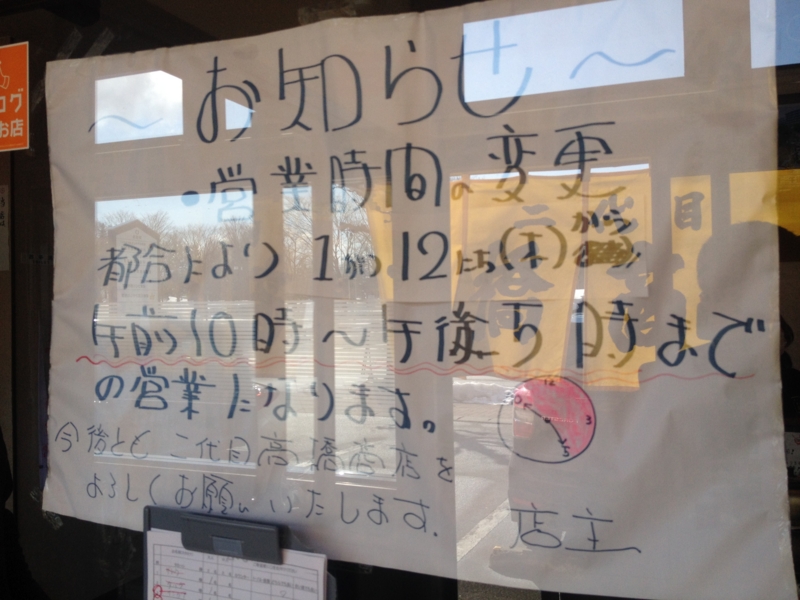 ～お知らせ～
・営業時間の変更
都合により1がつ12にち(木)から
午前10時～午後5時まで
の営業になります。
今後とも二代目高橋商店を
よろしくお願いいたします.
店主
12
3
ログ
お店